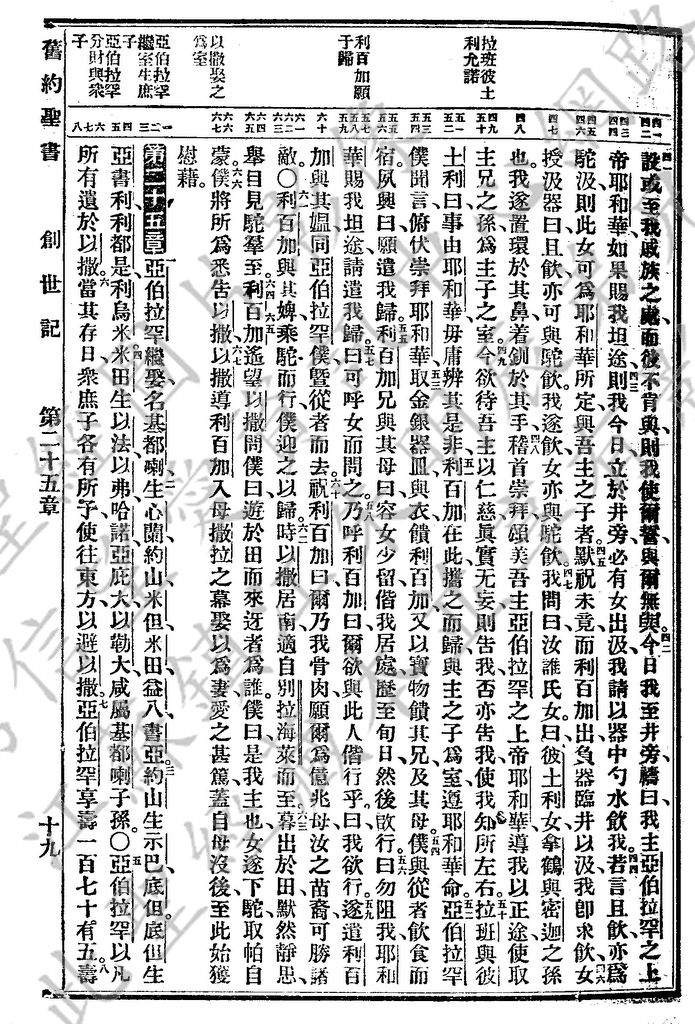 設或至我戚族之處而彼不肯與則我使爾誓與爾無與今日我至井旁禱曰我主亞伯拉罕之上
帝耶和華如果賜我坦途則我今日立於井旁必有女出汲我請以器中勺水飲我若言且飲亦爲
駝汲則此女可爲耶和華所定與吾主之子者默祝未竟而利百加出負器臨井以汲我卽求飲女
授汲器曰且飲亦可與駝飲我遂飲女亦與駝飲我問曰汝誰氏女曰彼土利女拿鶴與密迦之孫
也我遂置環於其鼻着釧於其手稽首崇拜頌美吾主亞伯拉罕之上帝耶和華導我以正途使取
主兄之孫爲主子之室今欲待吾主以仁慈眞實无妄則告我否亦告我使我知所左右拉班與彼
土利曰事由耶和華毋庸辨其是非利百加在此攜之而歸與主之子爲室遵耶和華命亞伯拉罕
僕聞言俯伏崇拜耶和華取金銀器皿與衣饋利百加又以寶物饋其兄及其母僕與從者飲食而
宿夙興曰願遣我歸利百加兄與其母曰容女少留偕我居處歷至旬日然後啟行曰勿阻我耶和
華賜我坦途請遣我歸曰可呼女而問之乃呼利百加曰爾欲與此人偕行乎曰我欲行遂遣利百
加與其媼同亞伯拉罕僕暨從者而去祝利百加曰爾乃我骨肉願爾爲億兆母汝之苗裔可勝諸
敵〇利百加與其婢乘駝而行僕迎之以歸時以撒居南適自別拉海萊而至暮出於田默然靜思
舉目見駝羣至利百加遙望以撒問僕曰遊於田而來迓者爲誰僕曰是我主也女遂下駝取帕自
蒙僕將所爲悉告以撒以撒導利百加入母撒拉之幕娶以爲妻愛之甚篤蓋自母沒後至此始獲
慰藉。
第二十五章 亞伯拉罕繼娶名基都喇生心蘭約山米但米田益八書亞約山生示巴底但底但生
亞書利利都是利烏米米田生以法以弗哈諾亞庇大以勒大咸屬基都喇子孫〇亞伯拉罕以凡
所有遺於以撒當其存日衆庶子各有所予使往東方以避以撒亞伯拉罕享壽一百七十有五壽
拉班彼土利允諾
利百加願于歸
以撒娶之爲室
亞伯拉罕繼室生庶子
亞伯拉罕分財與衆子
舊約聖書 創世記 第二十五章 十九